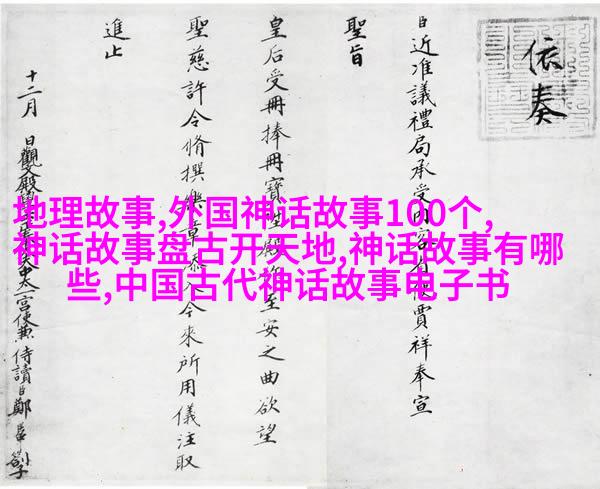 依奏
臣近准議禮局承受内客省使賈祥奉宣
聖旨
皇后受冊捧冊寶陞殿至安之曲欲望
聖慈許令脩撰樂章入今來所用儀注取
進止
十二月 日觀文殿學士太一宮使兼侍讀臣鄭
地理故事,外国神话故事100个,
神话故事盘古开天地,神话故事有哪
些,中国古代神话故事电子书